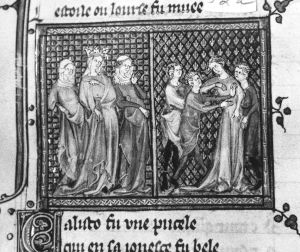 estoile ou lourse fu muee
Calisto fu vne pucele
qui en sa ionesce fu bele